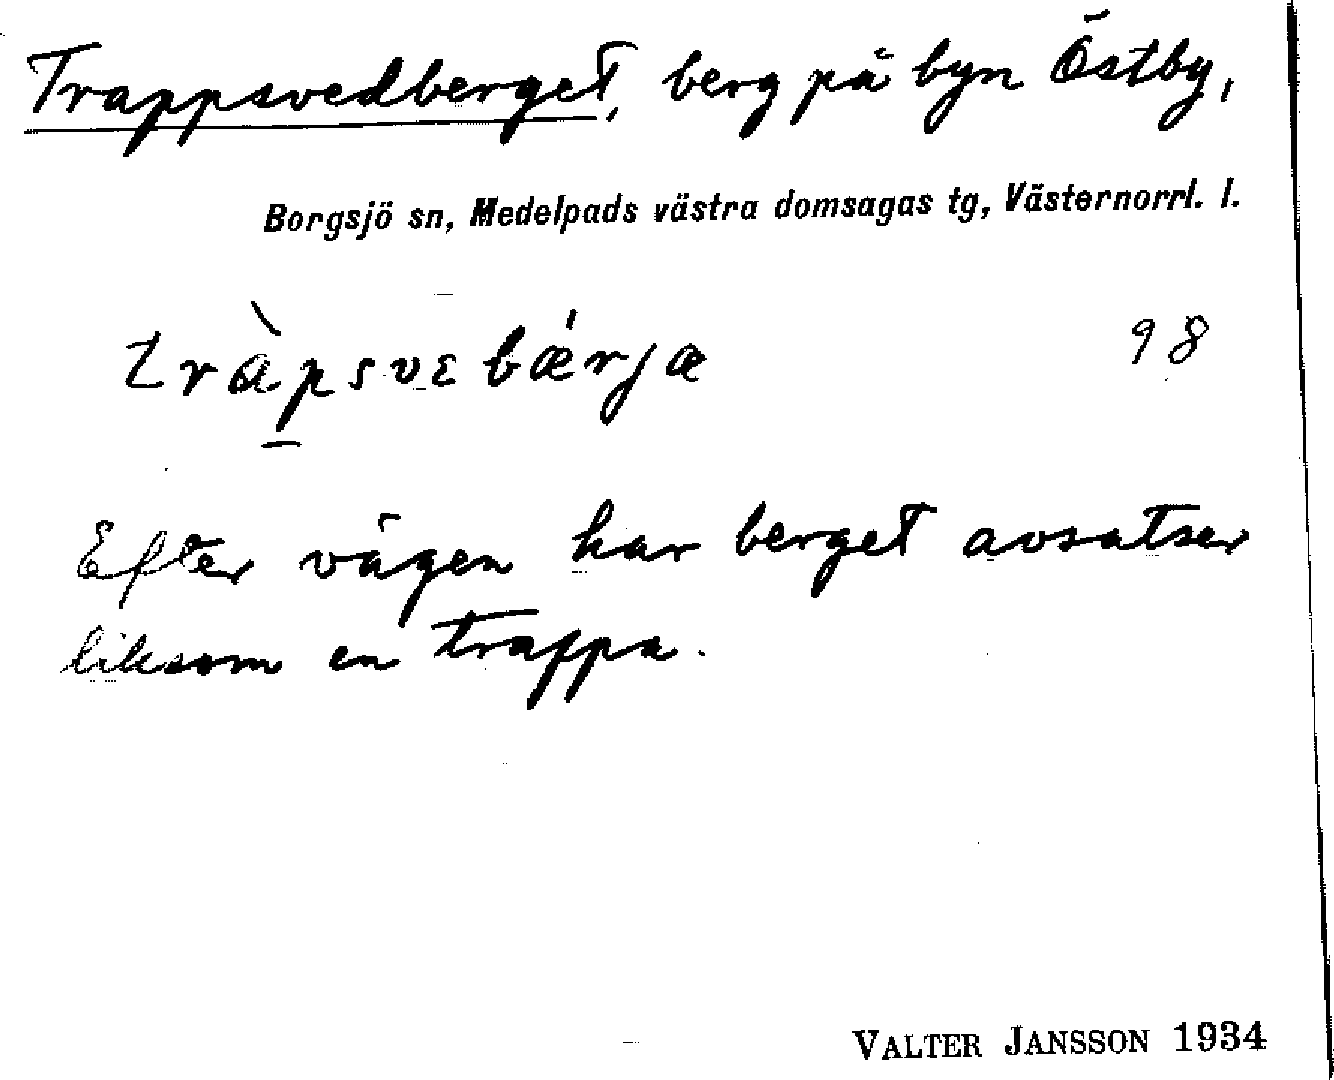 Trappsvedberget, berg på byn Östby,
Borgsjö sn, Medelpads västra domsagas tg, Västernorrl. l.
tràpsvɛbǽrjæ 98
Efter vägen har berget avsatser
liksom en trappa.
VALTER JANSSON 1934